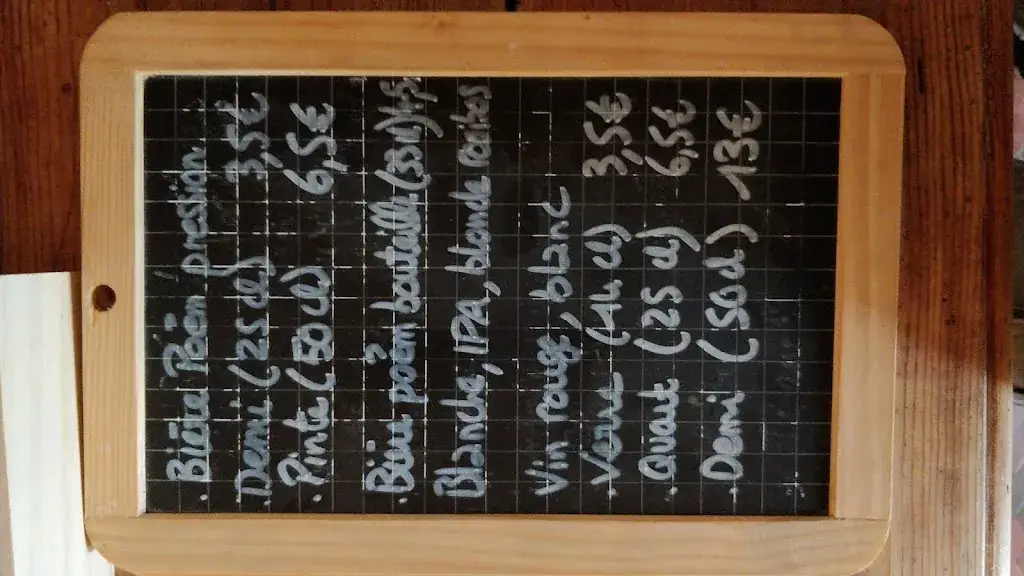 . Bière Poën pression
Demi (25 cl) 3,5€
. Pinte (50 cl) 6,5€
. Bière poën bouteille (33 cl)
Blanche, IPA, blonde
Vin rouge, blanc
. Verre (14 cl) 3,5€
. Quart (25 cl) 6,5€
. Demi (50 cl) 13€